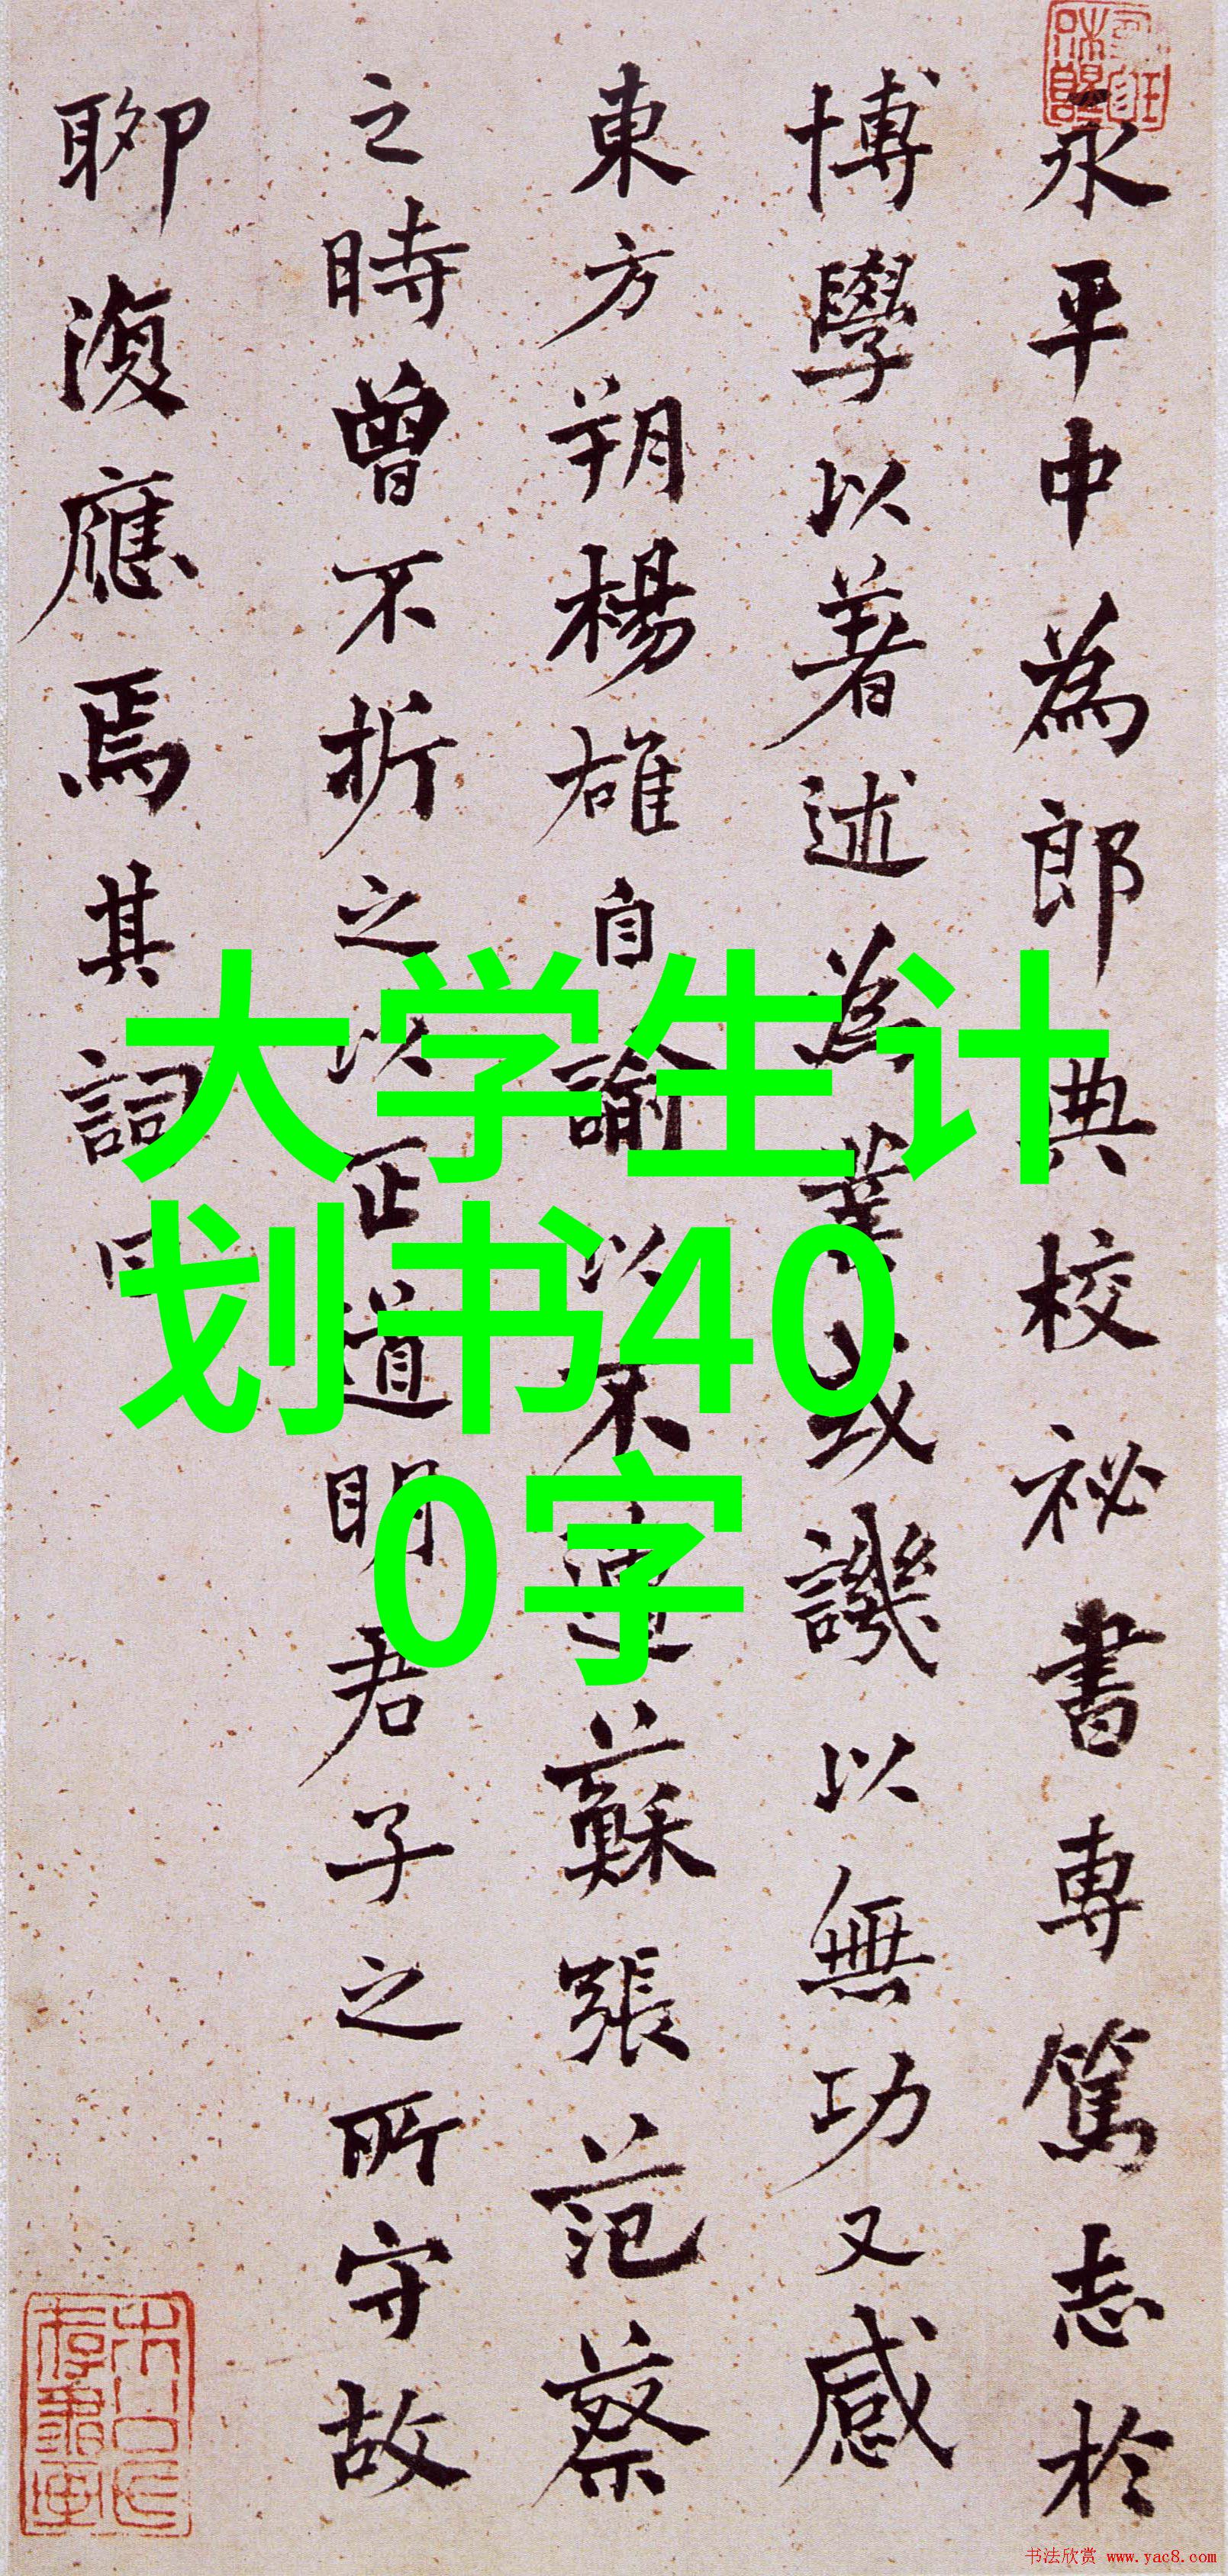 永平中為郎典校祕書專篤志於
博學以著述為業或譏以無功又感
東方朔楊雄自諭以不遭蘇張范蔡
之時曾不折之以正道明君子之所守故
聊復應焉其詞曰
大学生计
划书40
0字
书法欣赏 www.yac8.com